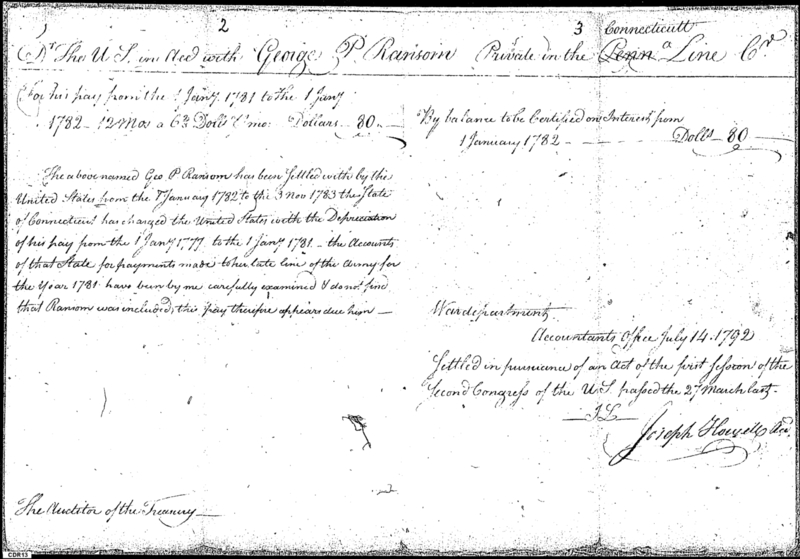 1 2 3
Connecticutt
Dr The U S in Acct with George P Ransom Private in the Penna Line Cr
For his pay from the 1 Jany 1781 to the 1 Jany
1782 - 12 Mos a 6 2/3 Dolls mo: Dollars - 80 -
By balance to be Certified on Interest from
1 January 1782 - Dolls - 80 -
The above named Geo P Ransom has been settled with by the
United States from the 1 January 1782 to the 3 Nov 1783 the State
of Connecticut has charged the United States with the Depreciation
of his pay from the 1 Jany 1777 to the 1 Jany 1781 - the Accounts
of that State for payments made to her late line of the Army for
the Year 1781 have been by me carefully examined & do not find
that Ransom was included, this pay therefore appears due him -
War department
Accountants Office July 14. 1792
Settled in pursuance of an Act of the first session of the
Second Congress of the U S. passed the 27 March last -
Joseph Howell Acct.
The Auditor of the Treasury -
CDR13